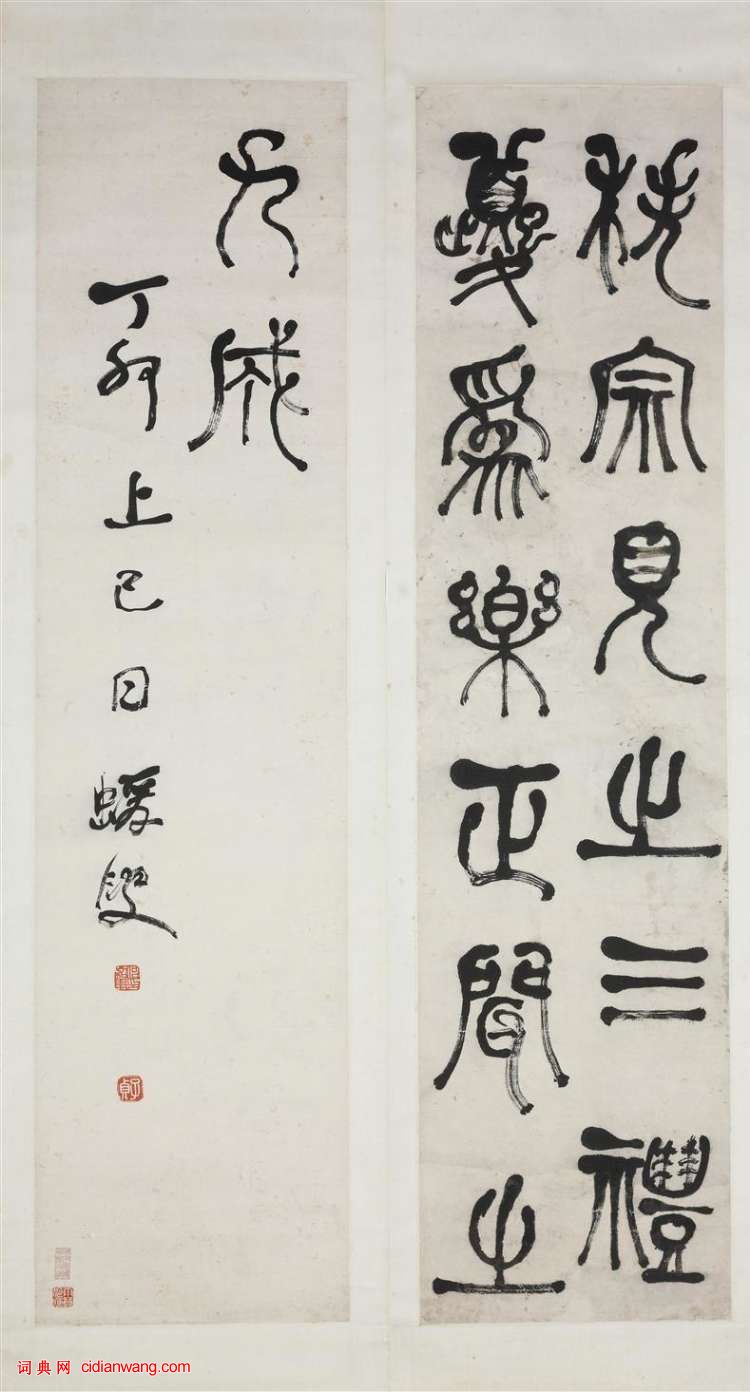 秩宗見之三禮
夔爲樂正聞之
九成
丁卯上巳日蝯叟
子貞
词典网 cidianwang.com